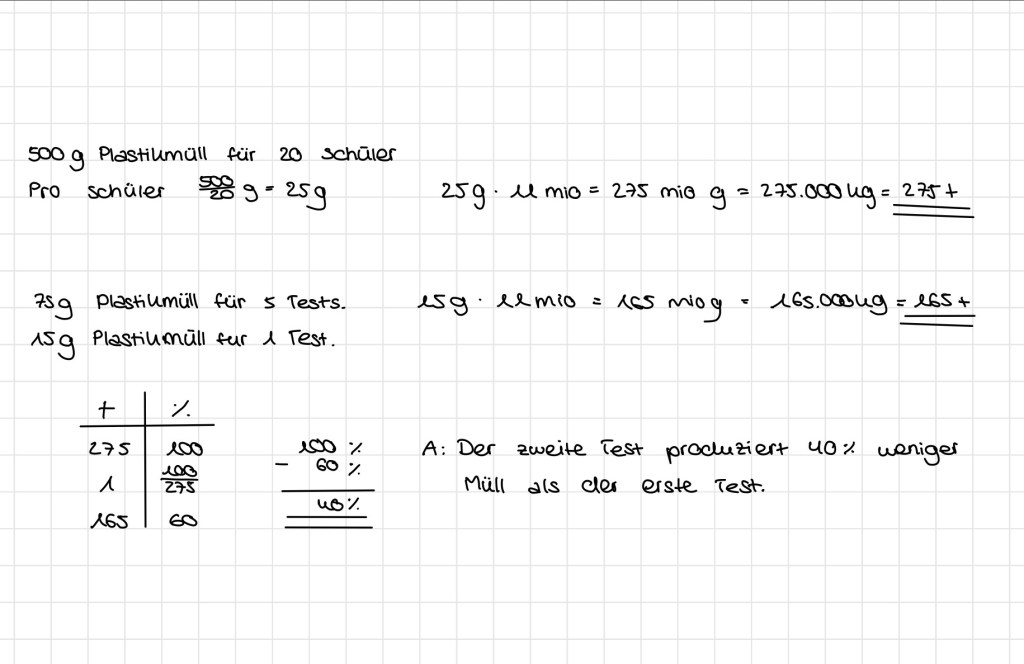 500 g Plastikmüll für 20 Schüler
Pro Schüler 500/20 g = 25g
25g · 11 mio = 275 mio g = 275.000 kg = 275 t
75g Plastikmüll für 5 Tests.
15g · 11 mio = 165 mio g = 165.000 kg = 165 t
15g Plastikmüll für 1 Test.
t | %
275 | 100
1 | 100/275
165 | 60
100 %
- 60 %
40 %
A: Der zweite Test produziert 40 % weniger
Müll als der erste Test.